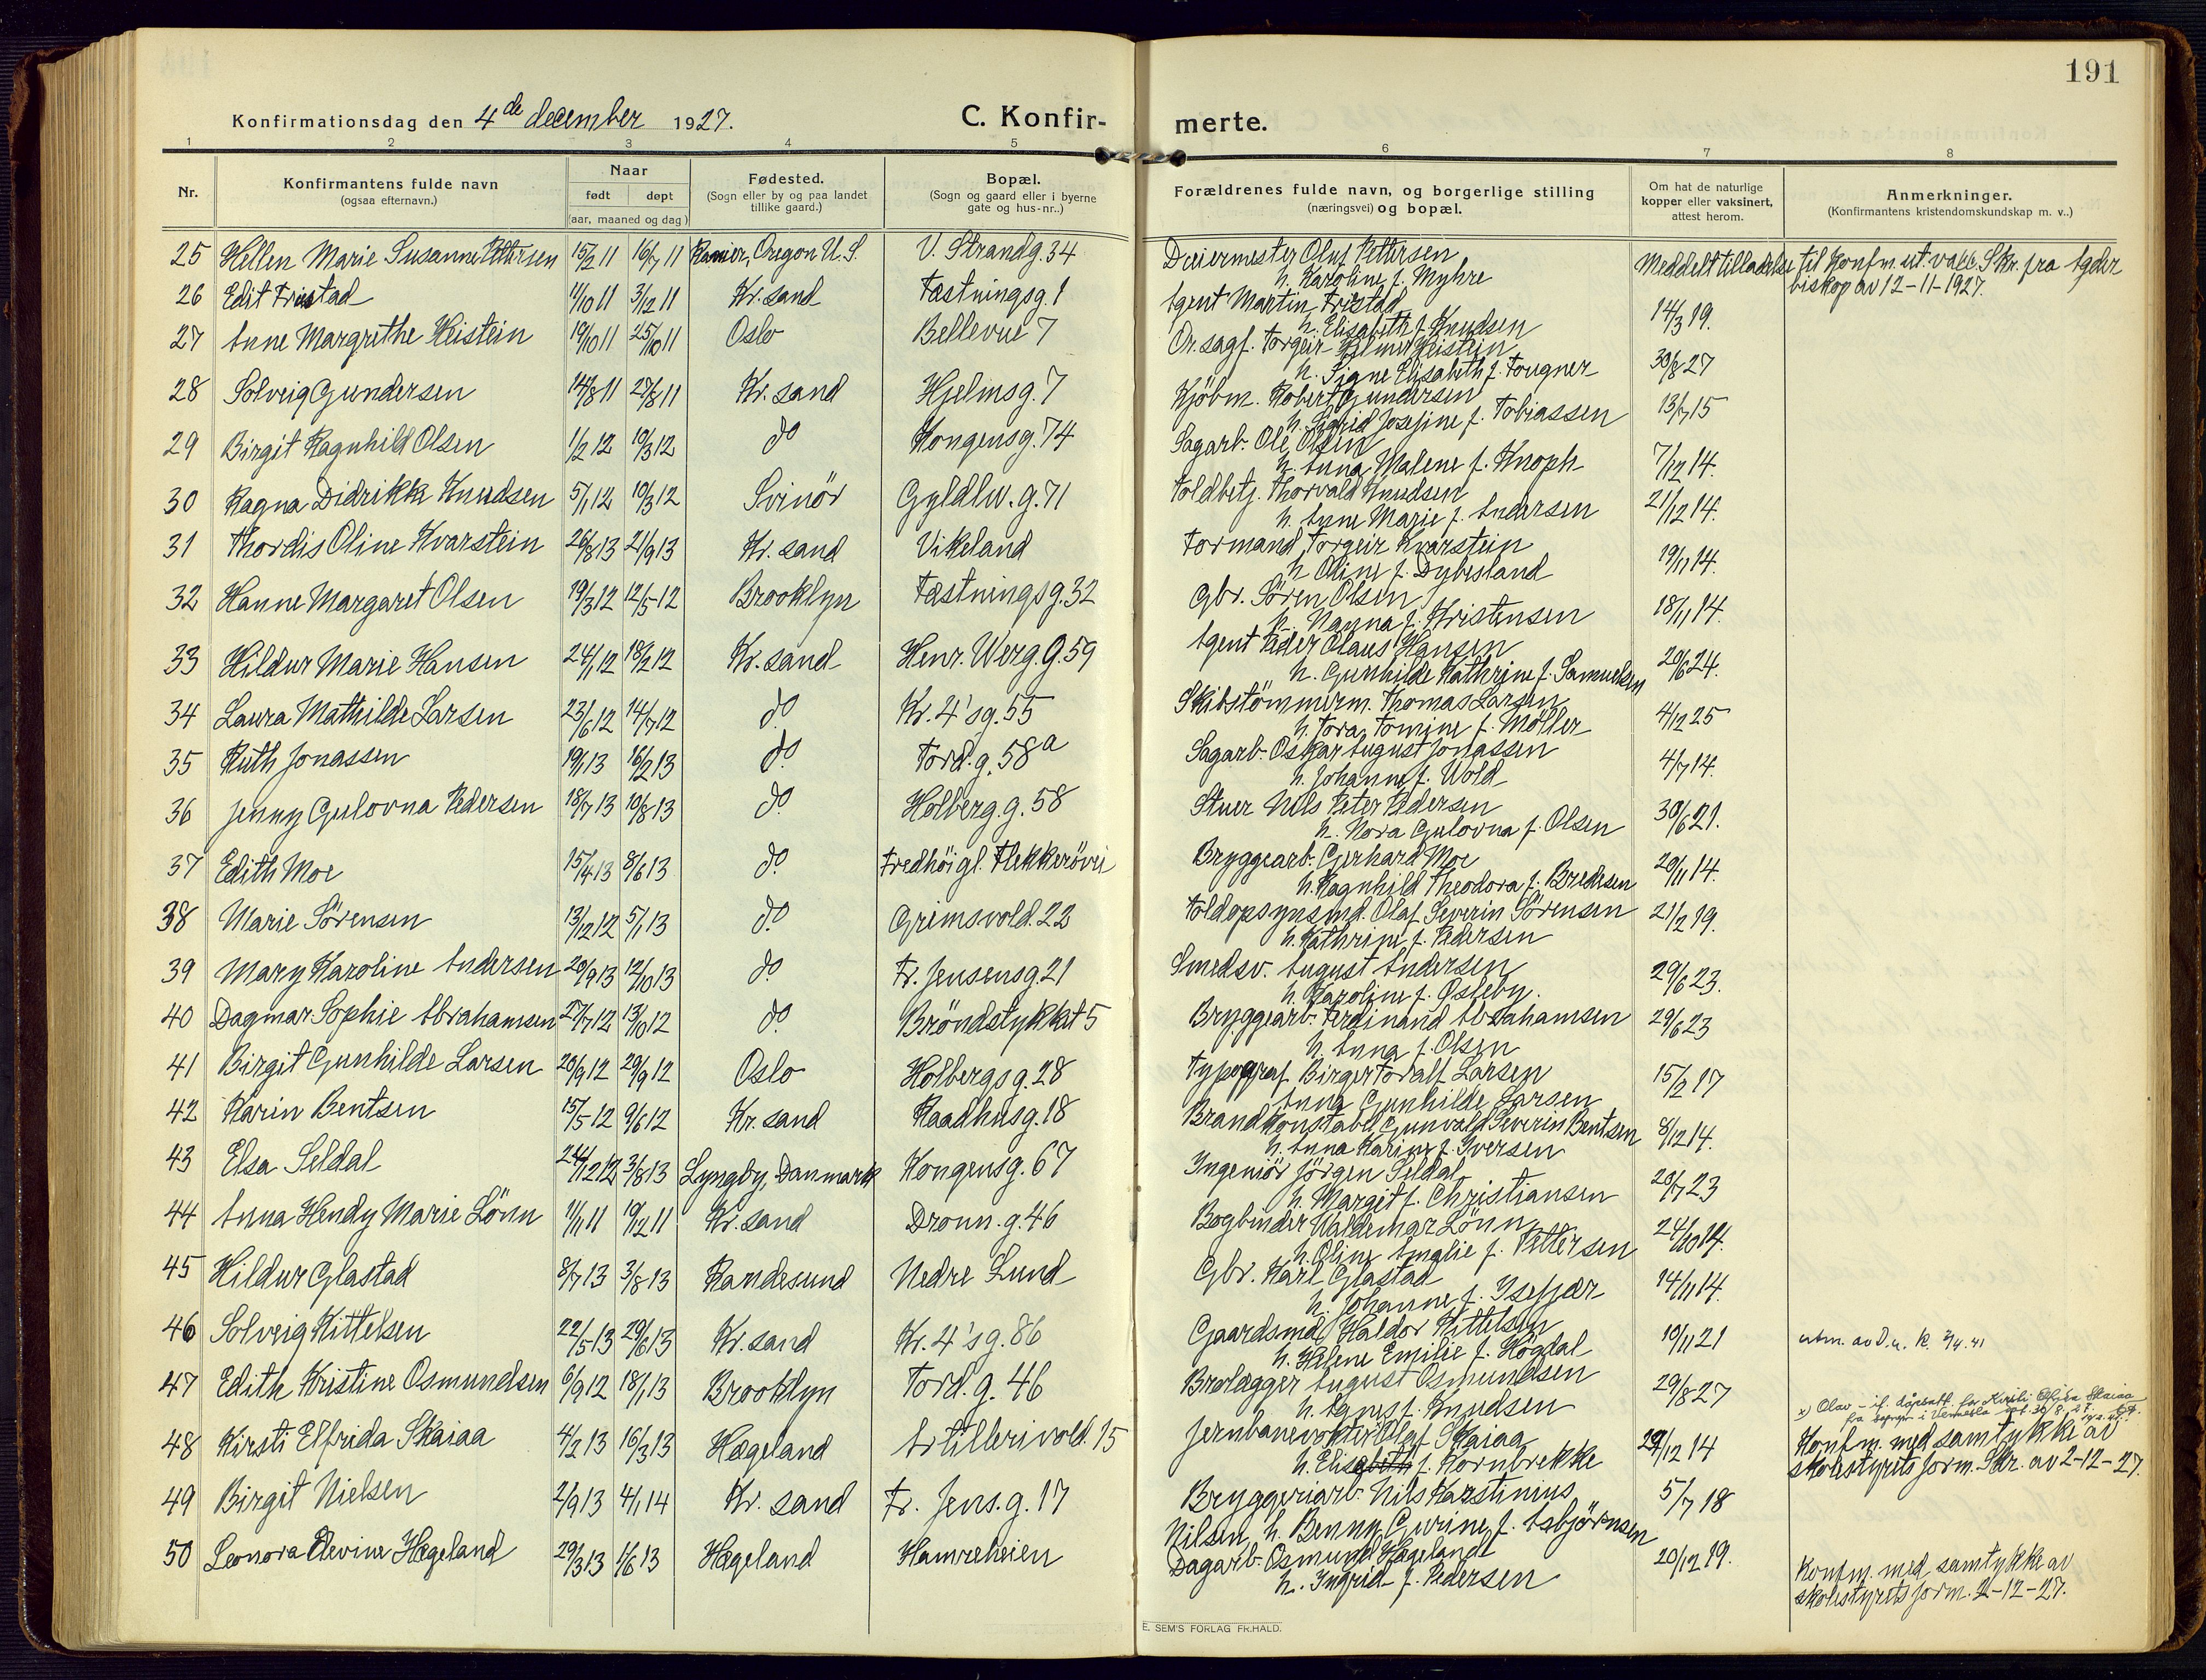 191
Konfirmationsdag den 4de december 1927.
C. Konfir-
merte.
1 2 3 4 5 6 7 8
Nr.
Konfirmantens fulde navn
(ogsaa efternavn.)
Naar
født døpt
(aar, maaned og dag)
Fødested.
(Sogn eller by og paa landet
tillike gaard.)
Bopæl.
(Sogn og gaard eller i byerne
gate og hus-nr..)
Forældrenes fulde navn, og borgerlige stilling
(næringsvei) og bopæl.
Om hat de naturlige
kopper eller vaksinert,
attest herom.
Anmerkninger.
(Konfirmantens kristendomskundskap m. v..)
25 Hellen Marie Susanne Pettersen 15/2 11 16/7 11 Oregon U.S. V. Strandg. 34 Dreiermester Oluf Pettersen
h. Karoline f. Myhre
Meddelt tilladelse til Konfm. ut. vakc. Skr. fra Agder
biskop av 12-11-1927.
26 Edit Tristad 11/10 11 3/12 11 Kr. sand Fæstningsg. 1 Agent Martin Tristad
h. Elisabeth f. Knudsen 14/3 19.
27 Anne Margrethe Heistein 19/10 11 25/10 11 Oslo Bellevue 7 Or. sagf. Torgeir Hilmer Heistein
h. Signe Elisabeth f. Tougner 30/8 27
28 Solveig Gundersen 14/8 11 27/8 11 Kr. sand Hjelmsg. 7 Kjöbm. Robert Gundersen
h. Sigrid Josefine f. Tobiassen 13/7 15
29 Birgit Ragnhild Olsen 1/2 12 10/3 12 do Kongensg. 74 Sagarb. Ole Olsen
h. Anna Malene f. Knoph 7/12 14.
30 Ragna Didrikke Knudsen 5/1 12 10/3 12 Svinör Gyldlw. g. 71 Toldbetj. Thorvald Knudsen
h. Anne Marie f. Andersen 21/12 14.
31 Thordis Oline Kvarstein 26/8 13 21/9 13 Kr. sand Vikeland Formand Torgeir Kvarstein
h. Oline f. Dybesland 19/11 14.
32 Hanne Margaret Olsen 19/3 12 12/5 12 Brooklyn Fæstningsg. 32 Gbr. Sören Olsen
h. Nanna f. Kristensen 18/11 14.
33 Hildur Marie Hansen 24/1 12 18/2 12 Kr. sand Henr. Werg. G. 59 Agent Peder Olaus Hansen
h. Gunhilde Kathrine f. Samuelsen 20/6 24.
34 Laura Mathilde Larsen 23/6 12 14/7 12 do Kr. 4'sg. 55 Skibstömmerm. Thomas Larsen
h. Tora Tomine f. Möller 4/12 25
35 Ruth Jonassen 19/1 13 16/2 13 do Tord. g. 58a Sagarb. Oskar August Jonassen
h. Johanne f. Wold 4/7 14.
36 Jenny Gulovna Pedersen 18/7 13 10/8 13 do Holberg. g. 58 Stuer Nils Peter Pedersen
h. Nora Gulovna f. Olsen 30/6 21.
37 Edith Moe 15/4 13 8/6 13 do Fredhöi gl. Flekkeröyvei Bryggearb. Gerhard Moe
h. Ragnhild Theodora f. Bredesen 20/11 14.
38 Marie Sörensen 13/12 12 5/1 13 do Grimsvold. 22 Toldopsynsmd. Olaf Severin Sörensen
h. Kathrine f. Pedersen 21/2 19.
39 Mary Karoline Andersen 20/9 13 12/10 13 do Fr. Jensensg. 21 Smedsv. August Andersen
h. Karoline f. Østeby. 29/6 23.
40 Dagmar Sophie Abrahamsen 27/7 12 13/10 12 do Bröndstykket 5 Bryggearb. Ferdinand Abrahamsen
h. Anna f. Olsen 29/6 23
41 Birgit Gunhilde Larsen 20/9 12 29/9 12 Oslo Holbergsg. 28 Typograf Birger Toralf Larsen
Anna Gunhilde Larsen 15/2 17
42 Karin Bentsen 15/5 12 9/6 12 Kr. sand Raadhusg. 18 Brandkonstabel Gunvald Severin Bentsen
h. Anna Karine f. Iversen 8/12 14.
43 Elsa Seldal 24/12 12 3/8 13 Lyngby, Danmark Kongensg. 67 Ingeniör Jörgen Seldal
h. Margit f. Christiansen 20/7 23
44 Anna Hendy Marie Lönn 11/11 11 19/12 11 Kr. sand Dronn. g. 46 Bogbinder Valdemar Lönn
h. Oline Amalie f. Pettersen 24/10 14.
45 Hildur Glastad 8/7 13 3/8 13 Randesund Nedre Lund Gbr. Karl Glastad
h. Johanne f. Isefjær 14/11 14.
46 Solveig Kittelsen 22/5 13 29/6 13 Kr. sand Kr. 4'sg. 86 Gaardsmd. Haldor Kittelsen
h. Helene Emilie f. Högdal 10/11 21
utm. av D. n. K. 2/4 41
47 Edith Kristine Osmundsen 6/9 12 18/1 13 Brooklyn Tord. g. 46 Brolægger August Osmundsen
h. Agnes f. Knudsen 29/8 27
x) Olav - if. dåpsatt. for Kirsti Elfrida Skaiaa
fra sogepr. i Vennesla
48 Kirsti Elfrida Skaiaa 4/2 13 16/3 13 Hægeland Artillerivold. 15 Jernbanevokter Olaf Skaiaa
h. Elisabeth f. Hornbrekke 29/12 14
Konfm. med samtykke av
skolestyrets form. Skr. av 2-12-27.
49 Birgit Nielsen 2/9 13 4/1 14 Kr. sand Fr. Jens. g. 17 Bryggeriarb. Nils Karstinius
Nilsen h. Benny Gurine f. Asbjörnsen 5/7 18
50 Leonora Elevine Hægeland 29/3 13 1/6 13 Hægeland Hamreheien Dagarb. Osmund Hægeland
h. Ingrid f. Pedersen 20/12 19.
Konfm. med samtykke av
skolestyrets form. 2-12-27.
E. SEM'S FORLAG FR.HALD.